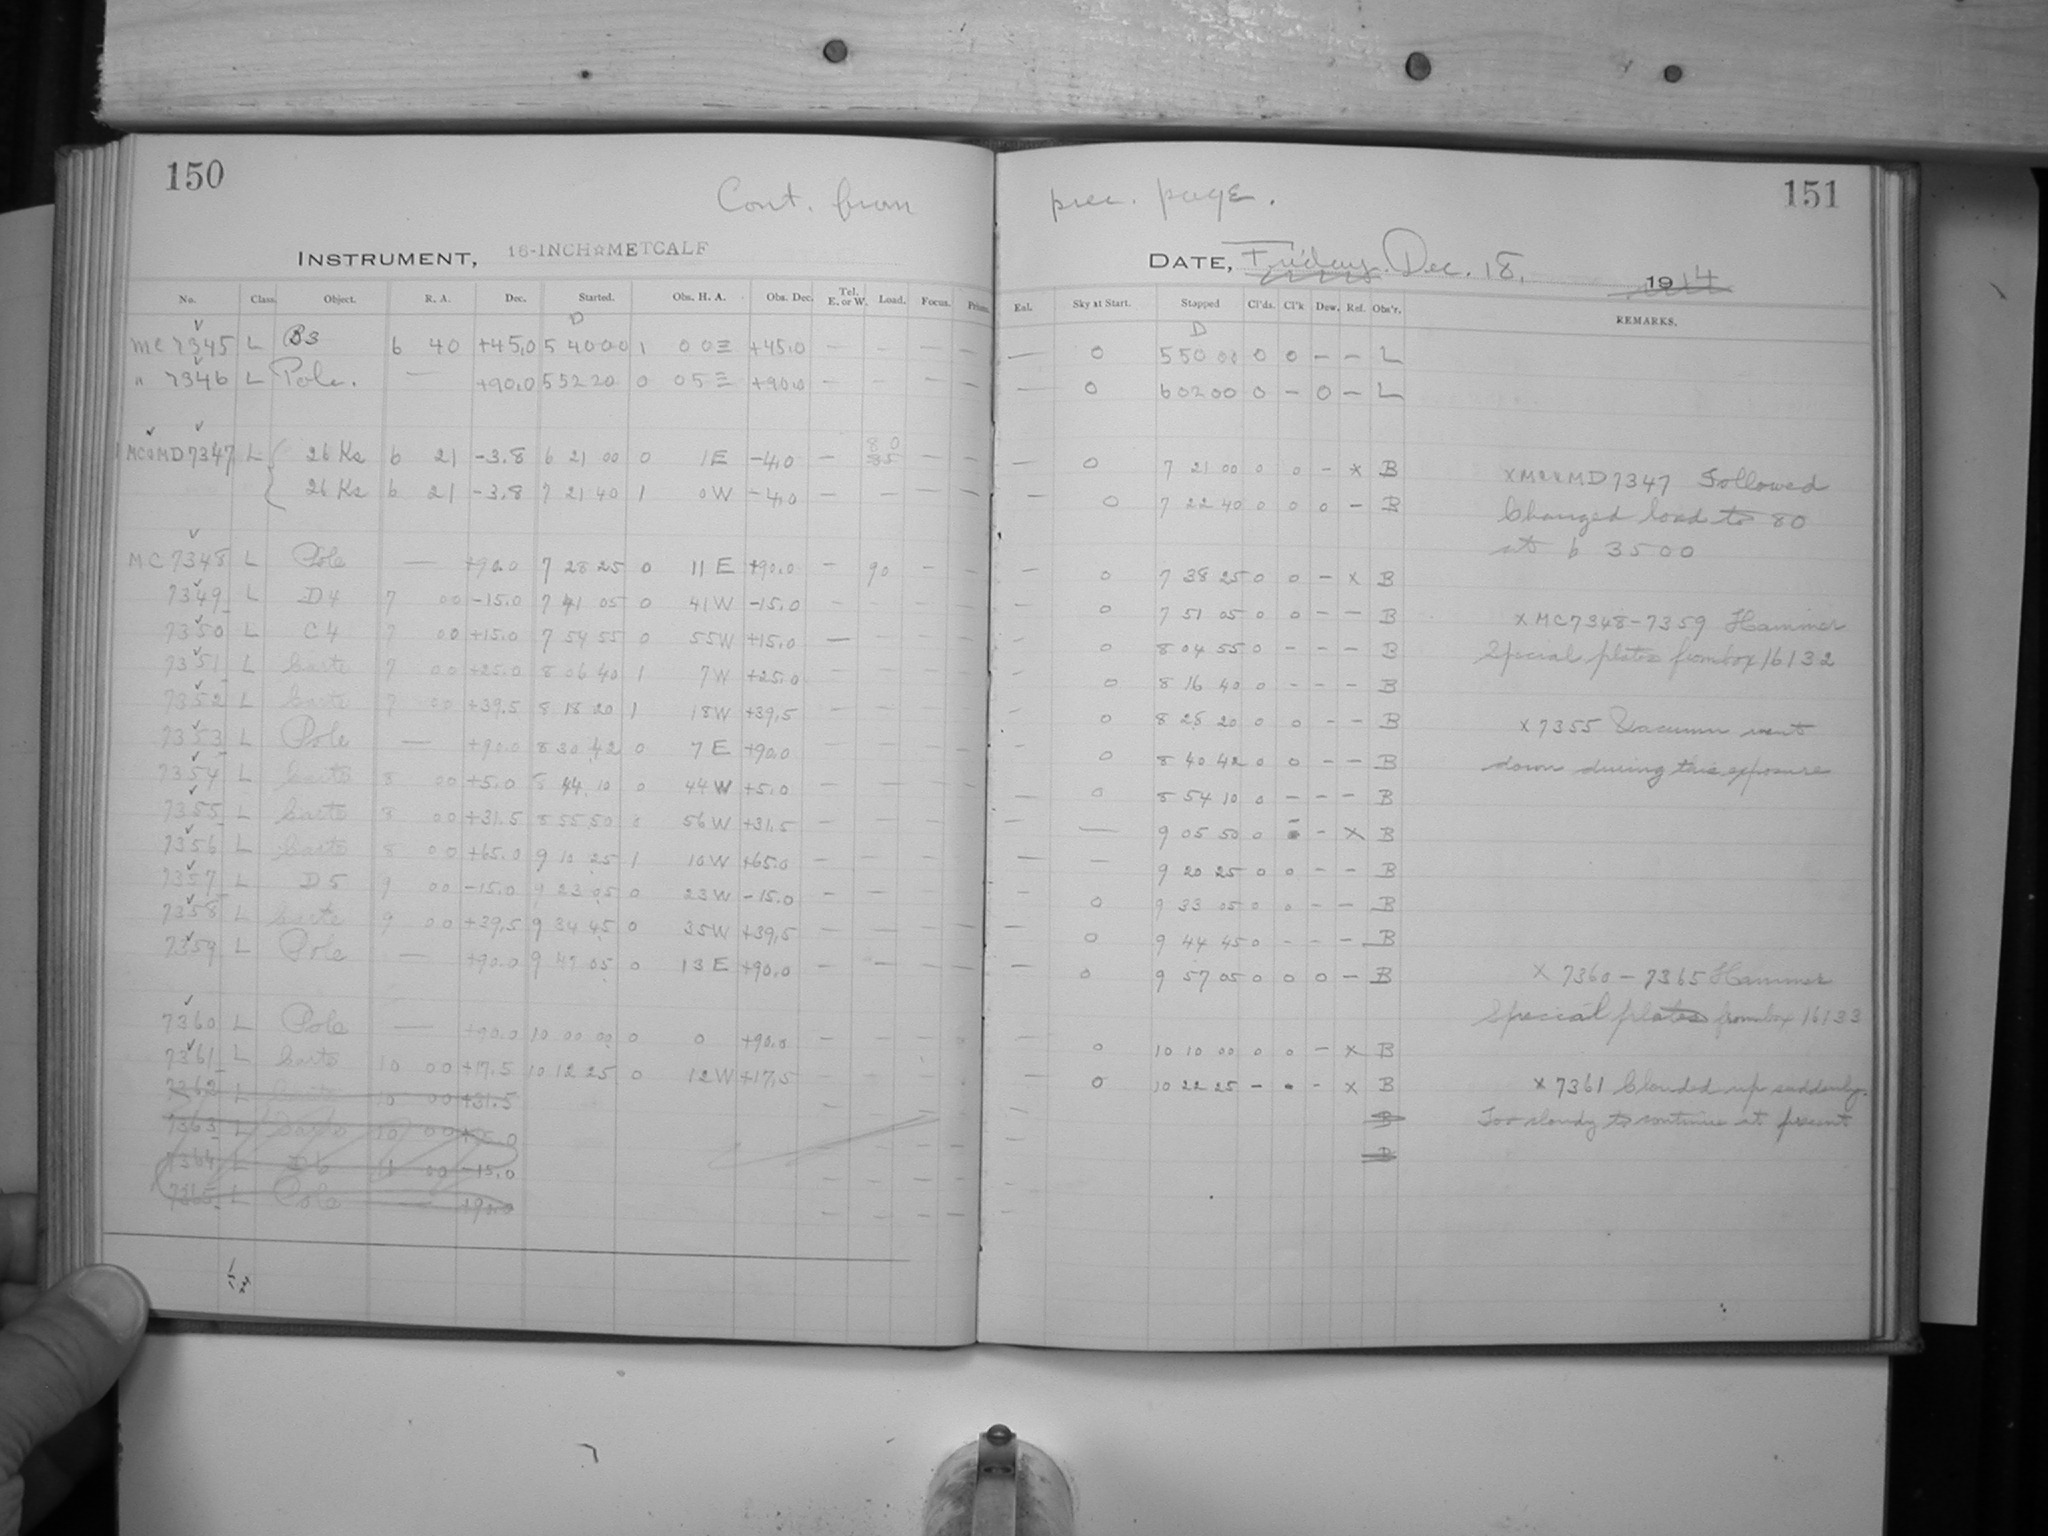 150
Cont. from prec. page.
151
INSTRUMENT, 16-INCH☆METCALF DATE, Friday. Dec. 18, 1914
No. Class. Object. R. A. Dec. Started. Obs. H. A. Obs. Dec. Tel. E. or W. Load. Focus. Prism. Enl. Sky at Start. Stopped Cl'ds. Cl'k Dew. Ref. Obs'r. REMARKS.
D D
MC 7345 L B3 6 40 +45.0 5 40 00 1 00E +45.0 — — — — — 0 5 50 00 0 0 — — L
" 7346 L Pole. — +90.0 5 52 20 0 05E +90.0 — — — — — 0 6 02 00 0 — 0 — L
MC&MD 7347 L 26 Ks 6 21 -3.8 6 21 00 0 1E -4.0 — 80 35 — — — 0 7 21 00 0 0 — x B x MC&MD 7347 Followed
26 Ks 6 21 -3.8 7 21 40 1 0W -4.0 — — — — — 0 7 22 40 0 0 0 — B Changed load to 80
at 6 35 00
MC 7348 L Pole — +90.0 7 28 25 0 11E +90.0 — 90 — — — 0 7 38 25 0 0 — x B
7349 L D4 7 00 -15.0 7 41 05 0 41W -15.0 — — — — — 0 7 51 05 0 0 — — B x MC7348-7359 Hammer
7350 L C4 7 00 +15.0 7 54 55 0 55W +15.0 — — — — — 0 8 04 55 0 — — — B Special plates from box 16132
7351 L Carte 7 00 +25.0 8 06 40 1 7W +25.0 — — — — — 0 8 16 40 0 — — — B
7352 L Carte 7 00 +39.5 8 18 20 1 18W +39.5 — — — — — 0 8 28 20 0 0 — — B x 7355 Vacuum went
7353 L Pole — +90.0 8 30 42 0 7E +90.0 — — — — — 0 8 40 42 0 0 — — B down during this exposure
7354 L Carte 8 00 +5.0 8 44 10 0 44W +5.0 — — — — — 0 8 54 10 0 — — — B
7355 L Carte 8 00 +31.5 8 55 50 0 56W +31.5 — — — — — — 9 05 50 0 — — x B
7356 L Carte 8 00 +65.0 9 10 25 1 10W +65.0 — — — — — — 9 20 25 0 0 — — B
7357 L D5 9 00 -15.0 9 23 05 0 23W -15.0 — — — — — 0 9 33 05 0 0 — — B
7358 L Carte 9 00 +39.5 9 34 45 0 35W +39.5 — — — — — 0 9 44 45 0 — — — B
7359 L Pole — +90.0 9 47 05 0 13E +90.0 — — — — — 0 9 57 05 0 0 0 — B x 7360-7365 Hammer
Special plates from box 16133
7360 L Pole — +90.0 10 00 00 0 0 +90.0 — — — — — 0 10 10 00 0 0 — x B
7361 L Carte 10 00 +17.5 10 12 25 0 12W +17.5 — — — — — 0 10 22 25 — — x B x 7361 Clouded up suddenly.
7362 L Carte 10 00 +31.5 — — B Too cloudy to continue at present
7363 L Carte 10 00 — — — B
7364 L D6 00 -15.0 — — — —
7365 L Pole — +90.0 — — — —